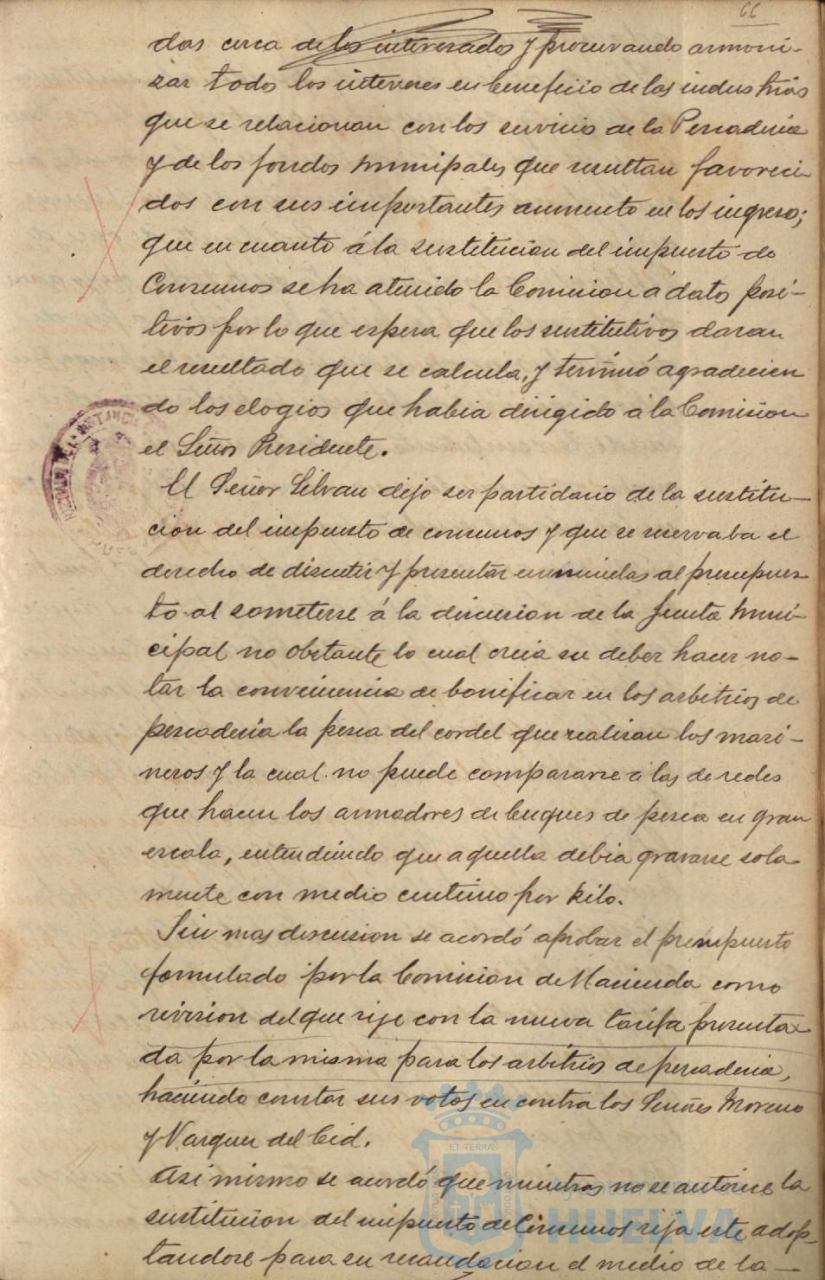 66
dos cerca de los interesados y procurando armoni-
zar todo los intereses en beneficio de las industrias
que se relacionan con los servicio de la Pescaderia
y de los fondos municipales que resultan favoreci-
dos con sus importantes aumento en los ingreso;
que en cuanto á la sustitucion del impuesto de
Consumos se ha atenido la Comision a datos posi-
tivos por lo que espera que los sustitutivos daran
el resultado que se calcula, y terminó agradecien
do los elogios que habia dirigido á la Comision
el Señor Presidente.
El Señor Silvan dijo ser partidario de la sustitu-
cion del impuesto de consumos y que se reservaba el
derecho de discutir y presentar enmiendas al presupues-
to al someterse á la discusion de la Junta Muni-
cipal no obstante lo cual creia su deber hacer no-
tar la conveniencia de bonificar en los arbitrios de
pescaderia la pesca del cordel que realizan los mari-
neros y la cual no puede compararse a las de redes
que hacen los armadores de buques de pesca en gran
escala, entendiendo que aquella debia gravarse sola
mente con medio centimo por kilo.
Sin mas discusion se acordó aprobar el presupuesto
formulado por la Comision de Hacienda como
revision del que rije con la nueva tarifa presenta-
da por la misma para los arbitrios de pescaderia,
haciendo constar sus votos en contra los Señores Moreno
y Vazquez del Cid.
Asi mismo se acordó que mientras no se autorice la
sustitucion del impuesto de Consumos rija este adop-
tandose para su recaudacion el medio de la
ET TERRAE
HUELVA